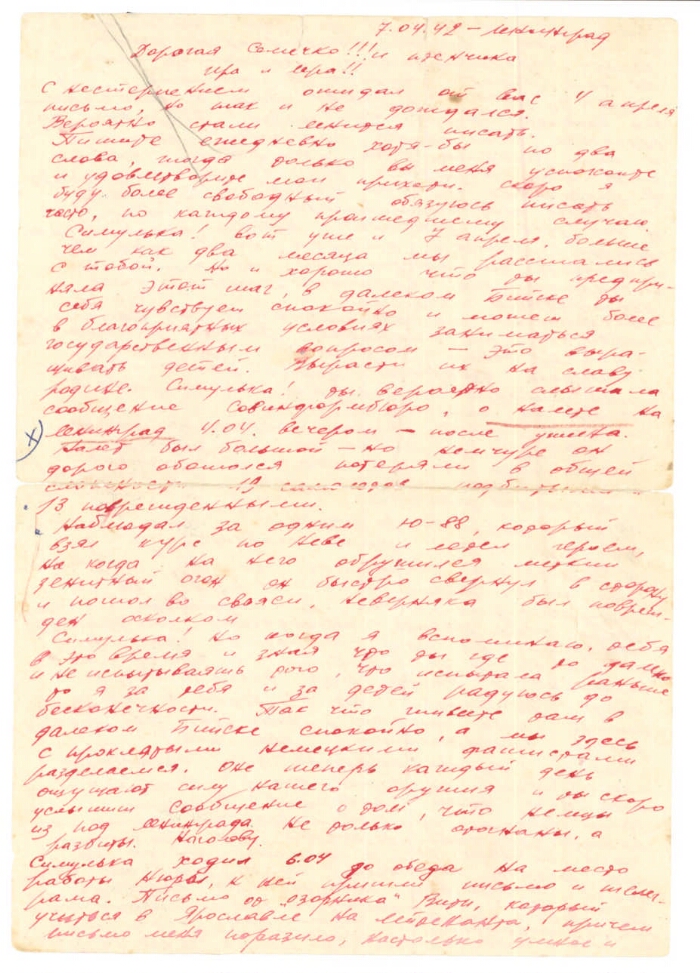 7.04.42 – Ленинград
Дорогая Симечка!!! и птенчика
Ира и Юра!!
С нестерпением ожидал от вас 4 апреля
письмо, но так и не дождался.
Вероятно стали ленится писать.
Пишите ежедневно хотя-бы по два
слова, тогда только вы меня успокоите
и удовлетворите мои прихоти. Скоро я
буду более свободный обязуюсь писать
часто, по каждому прошедшему случаю.
Симулька! Вот уже и 7 апреля, больше
чем как два месяца мы расстались
с тобой. Но и хорошо что ты предпри-
няла этот шаг, в далеком Бийске ты
себя чувствуеш спокойно и можеш более
в благоприятных условиях заниматься
государственным вопросом – это выра-
щивать детей. Вырасти их на славу
родине. Симулька! Ты вероятно слышала
сообщение Совинформбюро, о налете на
Ленинград 4.04. вечером – после ужина.
Налет был большой – но немчуре он
дорого обошолся потеряли в общей
сложности 19 самолетов подбитыми и
13 поврежденными.
Наблюдал за одним Ю-88, который
взял курс по Неве и летел героем,
но когда на него обрушился меткий
зенитный огон он быстро свернул в сторону
и пошол во свояси, наверняка был повреж-
ден осколком
Симулька! Но когда я вспоминаю, тебя
в это время и зная что ты где то далеко
и не испытываять того, что испытала раньше
то я за тебя и за детей радуюсь до
бесконечности. Так что живите там в
далеком Бийске спокойно, а мы здесь
с проклятыми немецкими фашистами
разделаемся. Оне теперь каждый день
ощущают силу нашего оружия и ты скоро
услышиш сообщение о том, что немцы
из под Ленинграда не только отогнаны, а
разбиты. Наголову.
Симулька ходил 6.04 до обеда на место
работы Нюры, к ней пришли письмо и телег-
рама. Письмо от "озорника" Вити, который
учиться в Ярославле на лейтенанта, причем
письмо меня поразило, настолько умное и